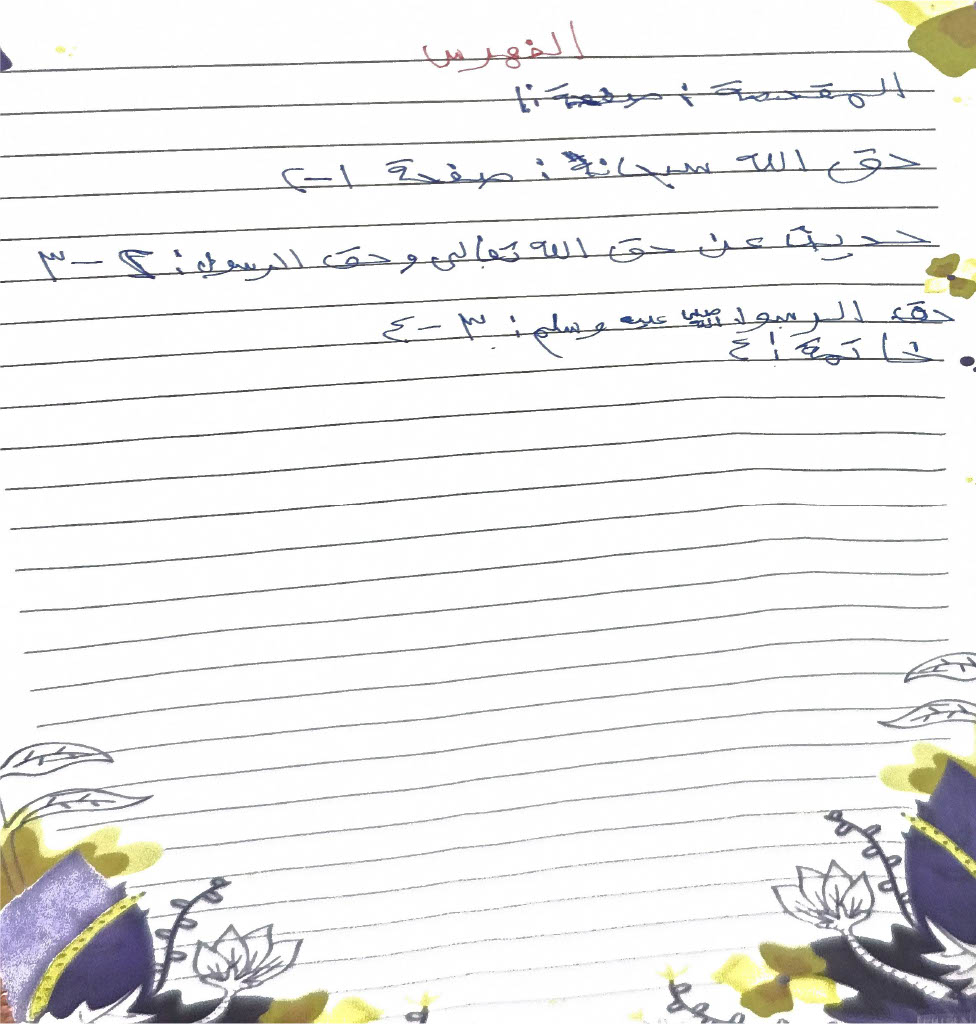 الفهرس
المقدمة : صفحة : ١
حق الله سبحانه : صفحة ١-٢
حديث عن حق الله تعالى وحق الرسول : ٢ - ٣
حق الرسول صلى الله عليه وسلم : ٣ - ٤
خاتمة : ٤